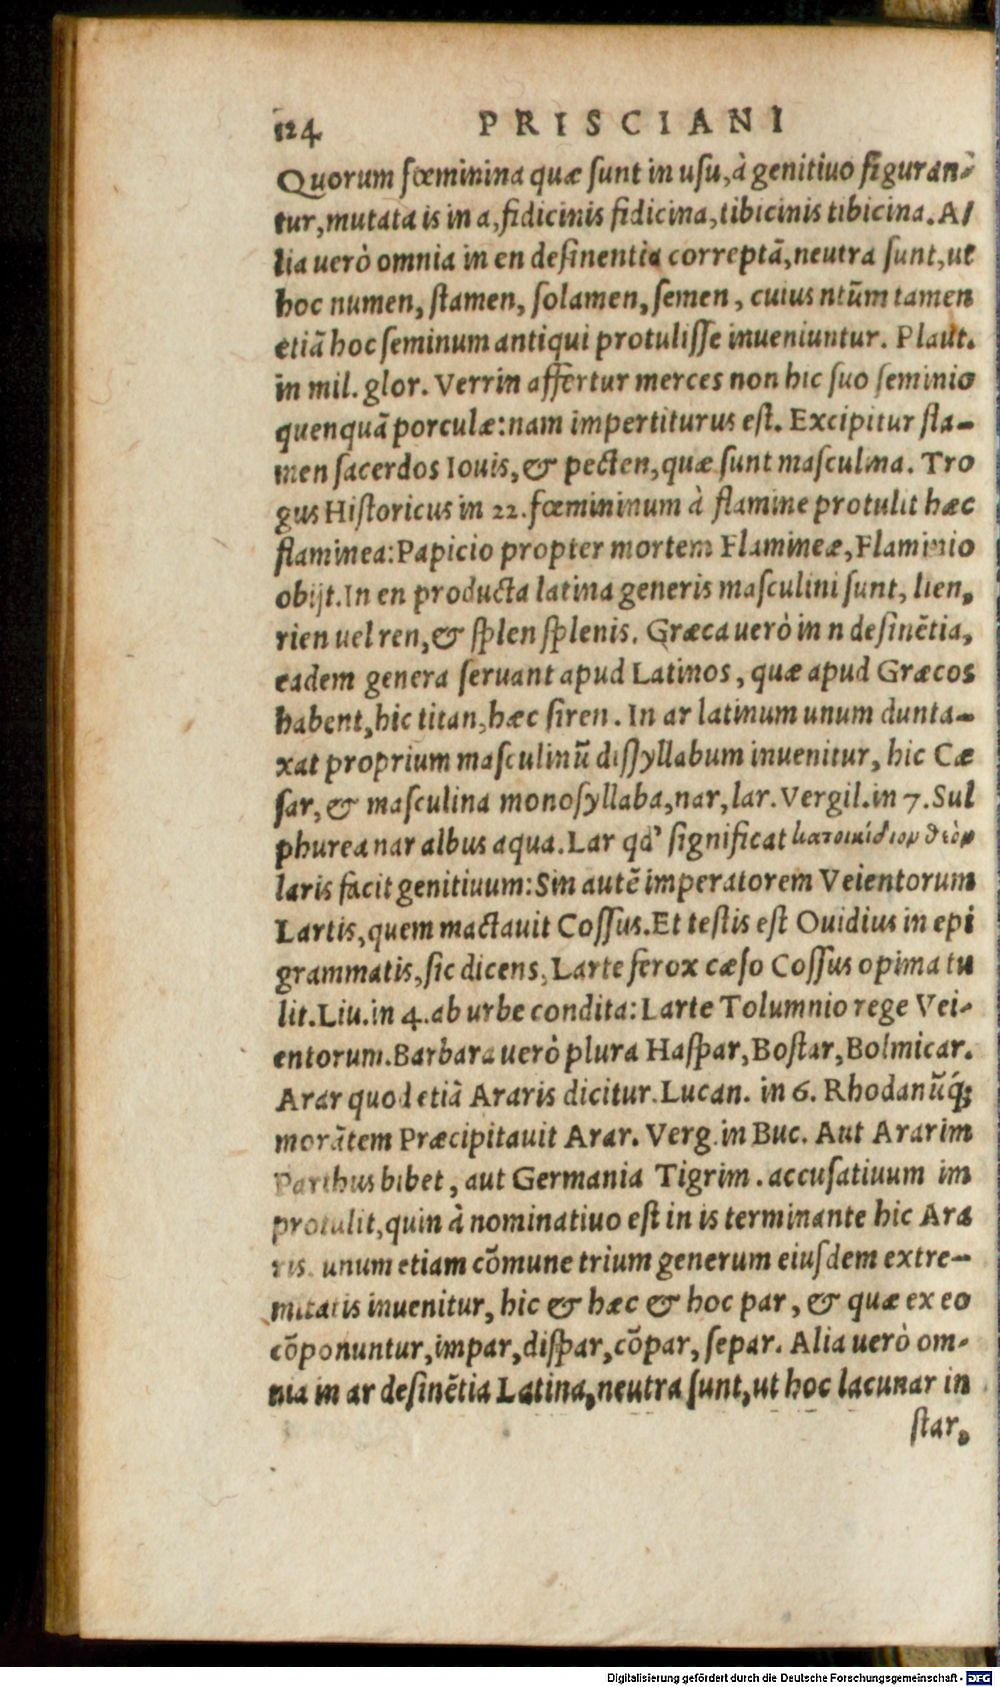 124 PRISCIANI
Quorum fœminina quæ sunt in usu, à genitiuo figuran-
tur, mutata is in a, fidicinis fidicina, tibicinis tibicina. A/
lia uerò omnia in en desinentia correptā, neutra sunt, ut
hoc numen, stamen, solamen, semen, cuius ntūm tamen
etiā hoc seminum antiqui protulisse inueniuntur. Plaut.
in mil. glor. Verrin affertur merces non hic suo seminio
quenquā porculæ: nam impertiturus est. Excipitur fla-
men sacerdos Iouis, & pecten, quæ sunt masculina. Tro
gus Historicus in 22. fœmininum à flamine protulit hæc
flaminea: Papicio propter mortem Flamineæ, Flaminio
obijt. In en producta latina generis masculini sunt, lien,
rien uel ren, & splen splenis. Græca uerò in n desinētia,
eadem genera seruant apud Latinos, quæ apud Græcos
habent, hic titan, hæc siren. In ar latinum unum dunta-
xat proprium masculinū dissyllabum inuenitur, hic Cæ
sar, & masculina monosyllaba, nar, lar. Vergil. in 7. Sul
phurea nar albus aqua. Lar qd' significat κατοικίδιον θεὸν
laris facit genitiuum: Sin autē imperatorem Veientorum
Lartis, quem mactauit Cossus. Et testis est Ouidius in epi
grammatis, sic dicens, Larte ferox cæso Cossus opima tu
lit. Liu. in 4. ab urbe condita: Larte Tolumnio rege Vei-
entorum. Barbara uerò plura Haspar, Bostar, Bolmicar.
Arar quod etiā Araris dicitur. Lucan. in 6. Rhodanūq́;
morātem Præcipitauit Arar. Verg. in Buc. Aut Ararim
Parthus bibet, aut Germania Tigrim. accusatiuum im
protulit, quin à nominatiuo est in is terminante hic Ara
ris. unum etiam cōmune trium generum eiusdem extre-
mitatis inuenitur, hic & hæc & hoc par, & quæ ex eo
cōponuntur, impar, dispar, cōpar, separ. Alia uerò om-
nia in ar desinētia Latina, neutra sunt, ut hoc lacunar in
star,
Digitalisierung gefördert durch die Deutsche Forschungsgemeinschaft - DFG